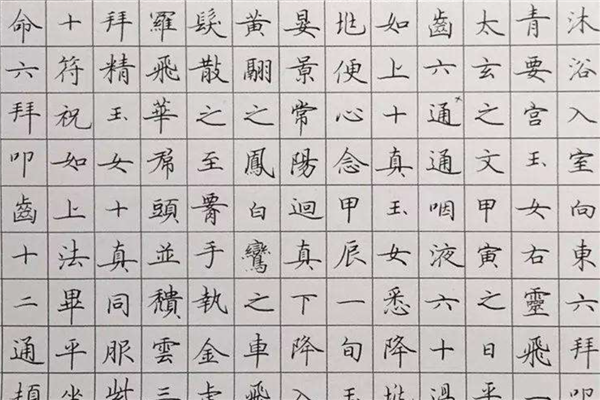 沐浴入室向東六拜叩
青要宫玉女右靈飛一
太玄之文甲寅之日平
齒六通通咽液六十過
如上十真玉女悉降垗
垗便心念甲辰一旬玉
晏景常陽迴真下降入
黃翮之鳳白鸞之車飛
髮散之至手執金虎
羅飛華帬頭並穨雲三
拜精玉女十真同服紫
十符祝如上法畢平坐
命六拜叩齒十二通頓